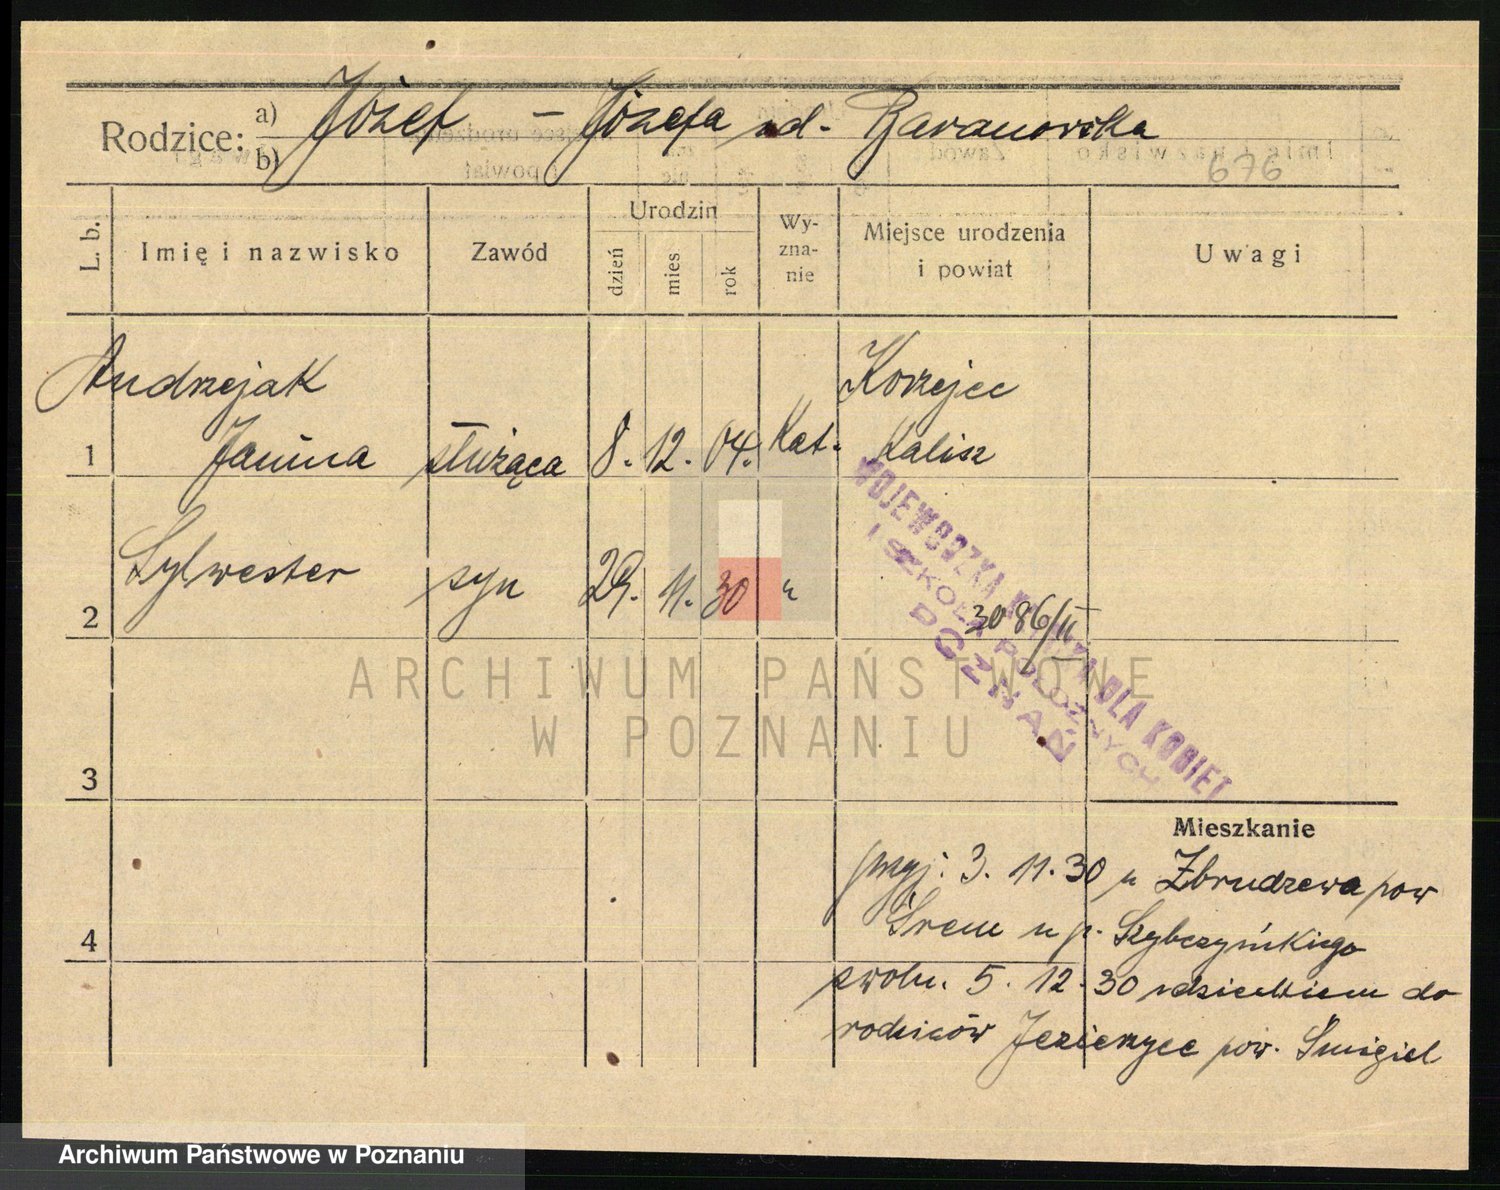 Rodzice: a) b) Józef – Józefa zd. Baranowska
676
L. b.
Imię i nazwisko
Zawód
Urodzin
dzień
mies
rok
Wy-
zna-
nie
Miejsce urodzenia
i powiat
Uwagi
Andrzejak
Korzejec
1 Janina służąca 8. 12. 04. Kat. Kalisz
2 Sylwester syn 29. 11. 30 "
WOJEWÓDZKA KLINIKA DLA KOBIET
I SZKOŁA POŁOŻNYCH
POZNAŃ
3086/II
ARCHIWUM PAŃSTWOWE
W POZNANIU
3
Mieszkanie
przyj: 3. 11. 30 z Zbrudzewa pow
4
Śrem u p. Szybczyńskiego
zwoln. 5. 12. 30 z dzieckiem do
rodziców Jezierzyce pow. Śmigiel
Archiwum Państwowe w Poznaniu